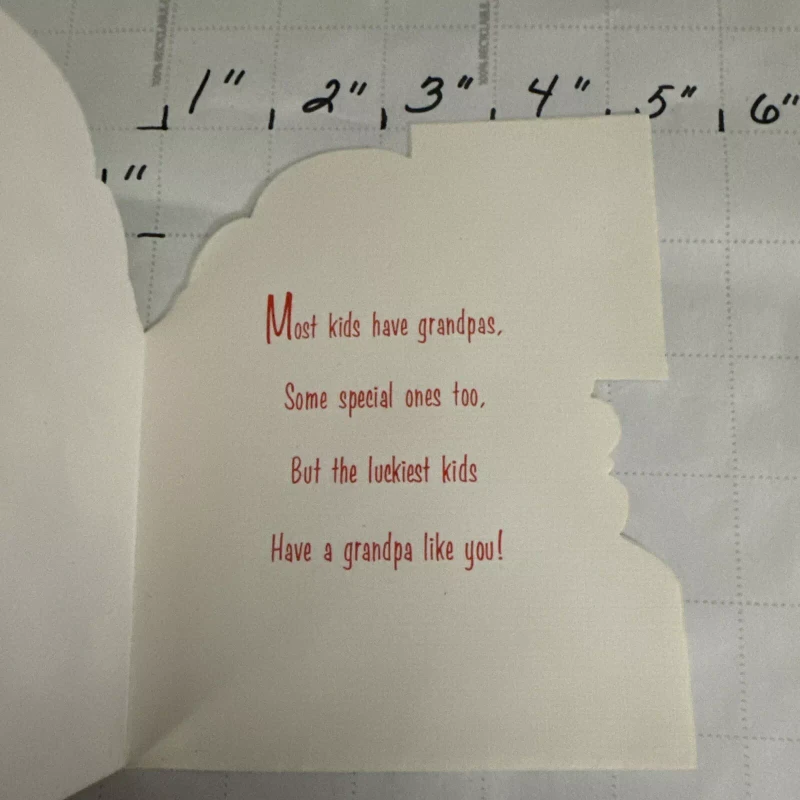 1" 2" 3" 4" 5" 6"
1"
Most kids have grandpas,
Some special ones too,
But the luckiest kids
Have a grandpa like you!